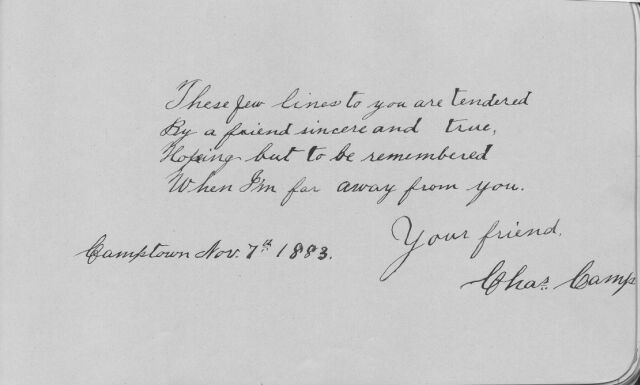 These few lines to you are tendered
By a friend sincere and true,
Hoping but to be remembered
When I'm far away from you.
Your friend.
Camptown Nov. 7th 1883.
Chas. Camp